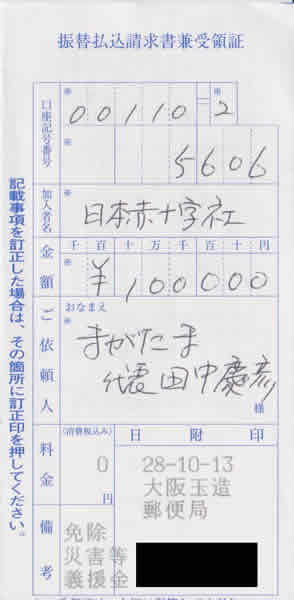 振替払込請求書兼受領証
口座記号番号
※
00110
※
2
※
5606
加入者名
※
日本赤十字社
金額
千百十万千百十円
※
¥100000
ご依頼人
おなまえ
※
まがたま
代表 田中慶彦
様
料金
(消費税込み)
0
円
日附印
28-10-13
大阪玉造
郵便局
備考
免除
災害等
義援金
記載事項を訂正した場合は、その箇所に訂正印を押してください。